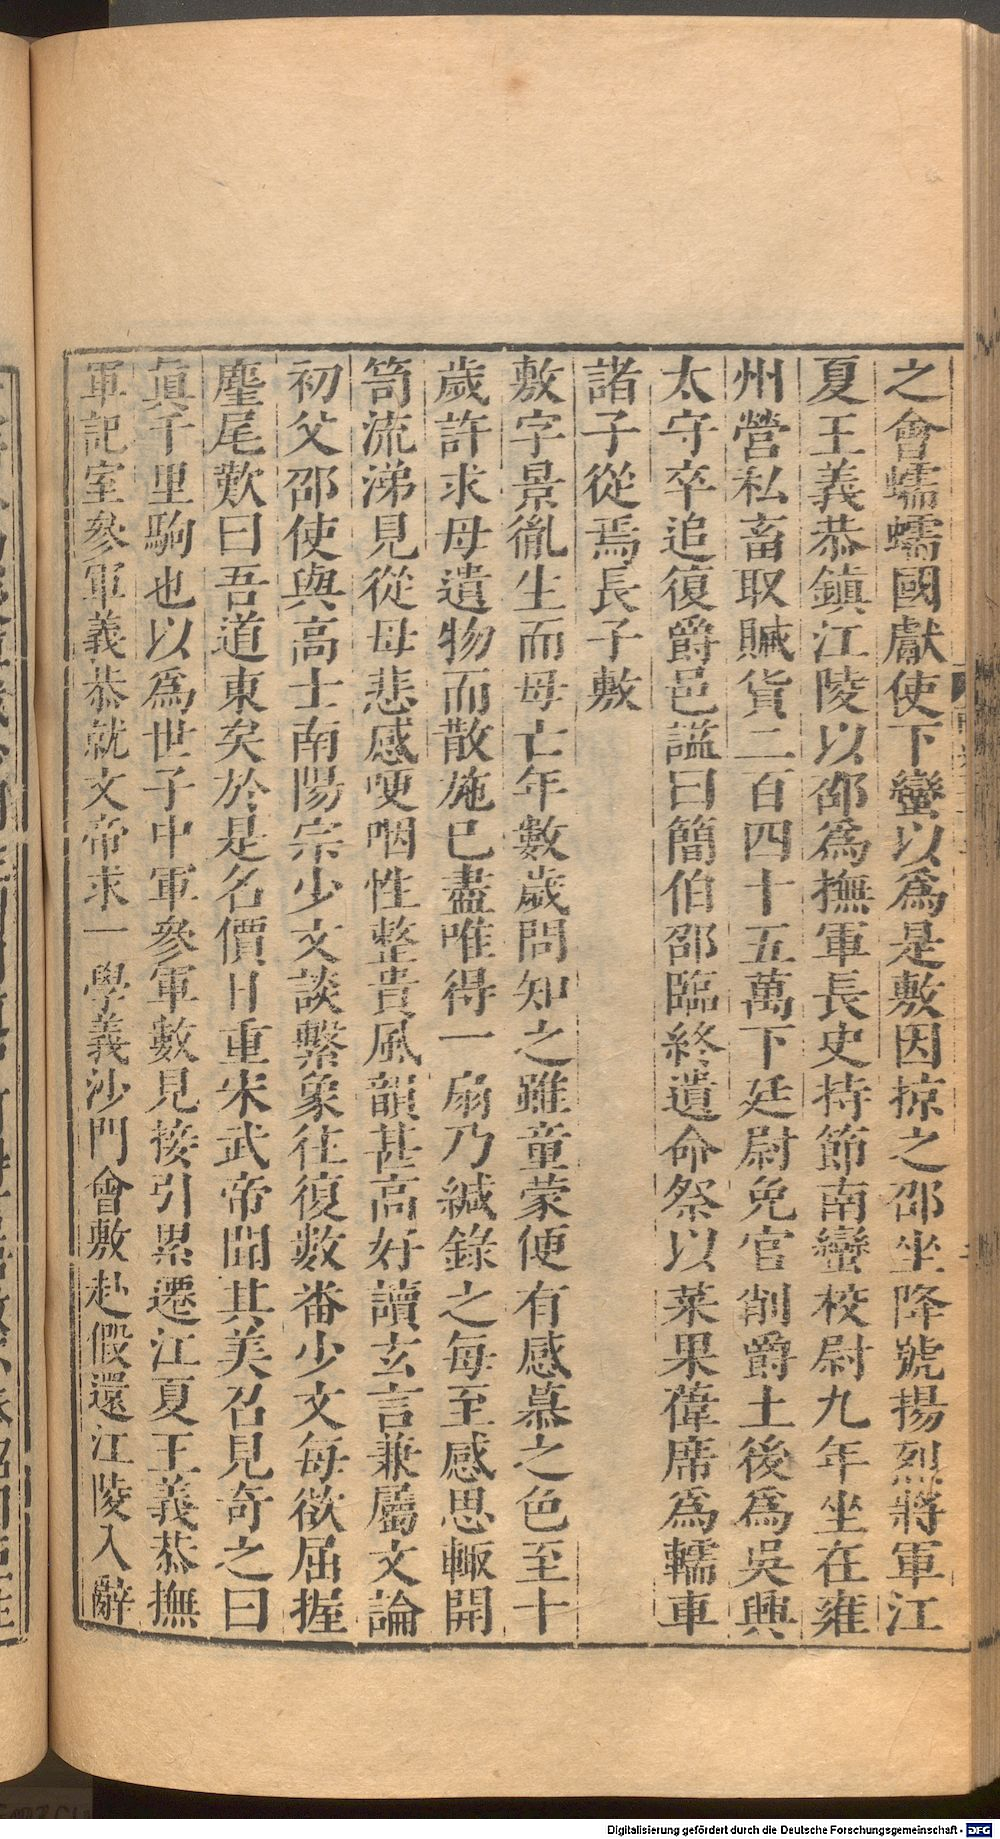 之會蠕蠕國獻使下蠻以爲是敷因掠之邵坐降號揚烈將軍江
夏王義恭鎮江陵以邵爲撫軍長史持節南蠻校尉九年坐在雍
州營私畜取贓貨二百四十五萬下廷尉免官削爵土後爲吳興
太守卒追復爵邑謚曰簡伯邵臨終遺命祭以菜果葦席爲轜車
諸子從焉長子敷
敷字景胤生而母亡年數歲問知之雖童蒙便有感慕之色至十
歲許求母遺物而散施已盡唯得一扇乃緘錄之每至感思輙開
笥流涕見從母悲感哽咽性整貴風韻甚高好讀玄言兼屬文論
初父邵使與高士南陽宗少文談繫象往復數番少文每欲屈握
麈尾歎曰吾道東矣於是名價日重宋武帝聞其美召見奇之曰
眞千里駒也以爲世子中軍參軍數見接引累遷江夏王義恭撫
軍記室參軍義恭就文帝求一學義沙門會敷赴假還江陵入辭
Digitalisierung gefördert durch die Deutsche Forschungsgemeinschaft - DFG